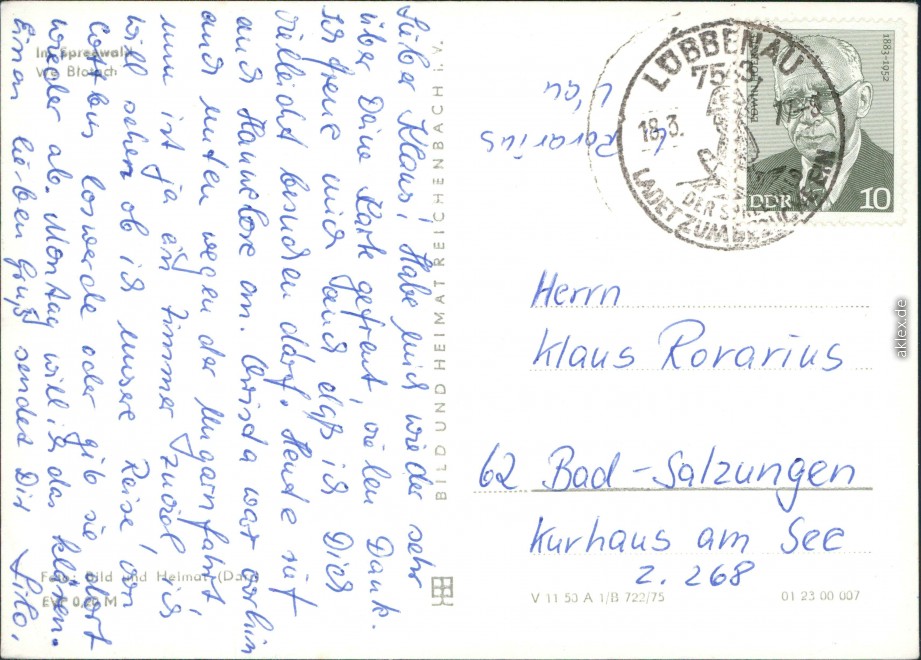 Lieber Klaus, Habe mich wieder sehr
über Deine Karte gefreut, vielen Dank.
Ich freue mich auch daß ich Dich
vielleicht besuchen darf. Heute rief
auch Hannelore an. Christa war vorhin
auch unten wegen der Ungarnfahrt,
nun ist ja ein Zimmer zuviel, ich
will sehen ob ich unsere Reise von
Cottbus loswerde oder gib sie dort
wieder ab. Montag will ich das klären.
Einen lieben Gruß sendet Dir Lilo.
Im Spreewald
Foto: Bild und Heimat
EVP 0,20 M
BILD UND HEIMAT REICHENBACH i. V.
L. Rorarius
L'au
LÜBBENAU
7543
18.3.
LADET ZUM
1883-1952
DDR 10
Herrn
Klaus Rorarius
62 Bad-Salzungen
Kurhaus am See
Z. 268
V 11 50 A 1/B 722/75
01 23 00 007
aklex.de